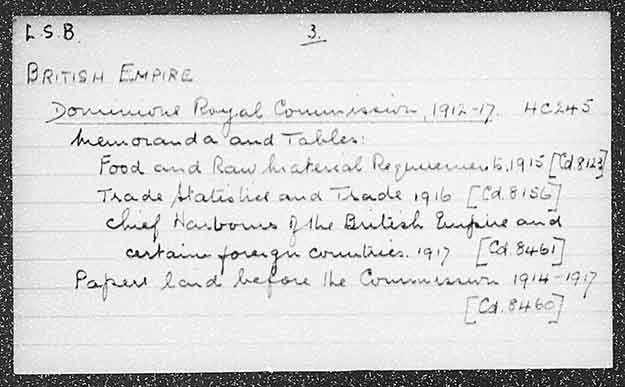 L.S.B. 3.
BRITISH EMPIRE
Dominions Royal Commission, 1912-17. HC245
Memoranda and Tables:
Food and Raw Material Requirements, 1915 [Cd.8123]
Trade Statistics and Trade 1916 [Cd.8156]
Chief Harbours of the British Empire and
certain foreign countries. 1917 [Cd.8461]
Papers laid before the Commission 1914-1917
[Cd.8460]